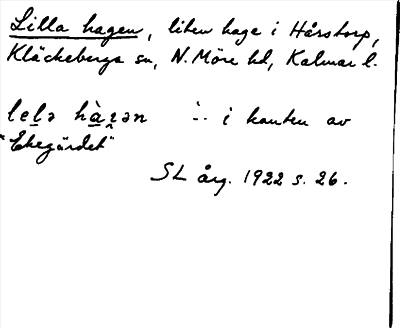 Lilla hagen, liten hage i Hårstorp,
Kläckeberga sn, N. Möre hd, Kalmar l.
i kanten av
"Ekegärdet"
SL årg. 1922 s. 26.